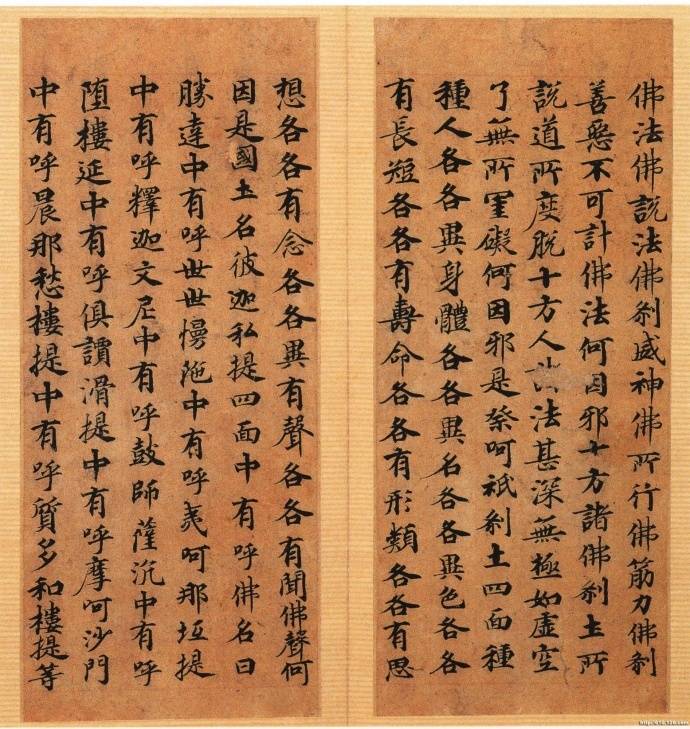 佛法佛說法佛剎威神佛所行佛筋力佛剎
善惡不可計佛法何因邪十方諸佛剎土所
說道所度脫十方人法甚深無極如虛空
了無所罣礙何因邪是祭呵祇剎土四面種
種人各各異身體各各異名各各異色各各
有長短各各有壽命各各有形類各各有思
想各各有念各各異有聲各各有聞佛聲何
因是國土名彼迦私提四面中有呼佛名曰
勝達中有呼世世慢陁中有呼夷呵那坻提
中有呼釋迦文尼中有呼鼓師薩沉中有呼
墮樓延中有呼俱讀滑提中有呼摩呵沙門
中有呼晨那愁樓提中有呼質多和樓提等